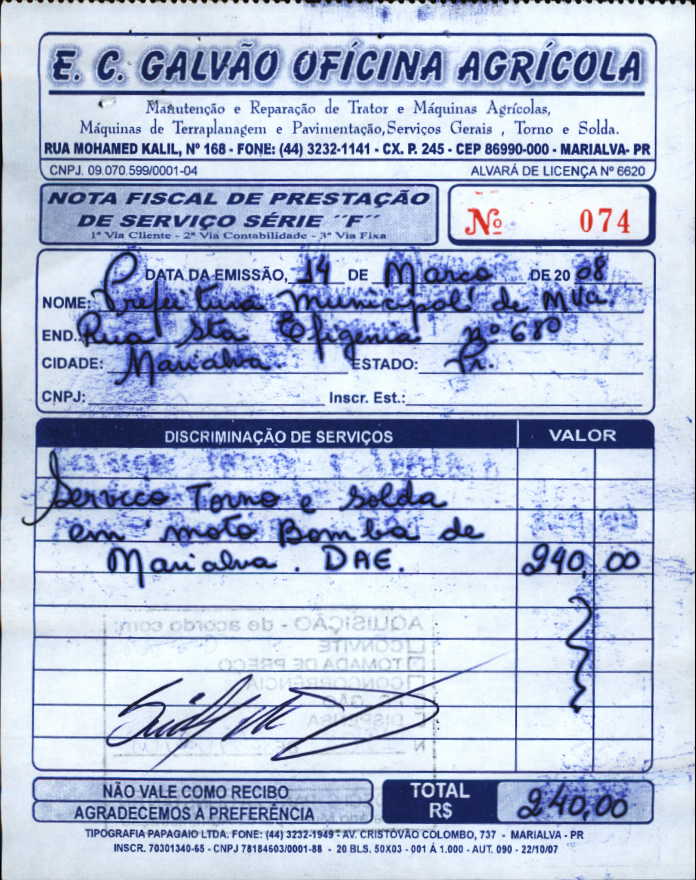 E. C. GALVÃO OFÍCINA AGRÍCOLA
Manutenção e Reparação de Trator e Máquinas Agrícolas,
Máquinas de Terraplanagem e Pavimentação,Serviços Gerais , Torno e Solda.
RUA MOHAMED KALIL, Nº 168 - FONE: (44) 3232-1141 - CX. P. 245 - CEP 86990-000 - MARIALVA- PR
CNPJ. 09.070.599/0001-04 ALVARÁ DE LICENÇA Nº 6620
NOTA FISCAL DE PRESTAÇÃO
DE SERVIÇO SÉRIE ´´F´´
1ª Via Cliente - 2ª Via Contabilidade - 3ª Via Fixa
Nº 074
DATA DA EMISSÃO, 14 DE Março DE 2008
NOME: Prefeitura Municipal de Mva.
END.: Rua Sta Efigenia nº 680
CIDADE: Marialva. ESTADO: Pr.
CNPJ: Inscr. Est.:
DISCRIMINAÇÃO DE SERVIÇOS VALOR
Serviço Torno e solda
em moto Bomba de
Marialva. DAE. 240,00
AQUISIÇÃO - de acordo com:
CONVITE
TOMADA DE PREÇO
CONCORRÊNCIA
DISPENSA
NÃO VALE COMO RECIBO
AGRADECEMOS A PREFERÊNCIA
TOTAL
R$ 240,00
TIPOGRAFIA PAPAGAIO LTDA. FONE: (44) 3232-1949 - AV. CRISTÓVÃO COLOMBO, 737 - MARIALVA - PR
INSCR. 70301340-65 - CNPJ 78184603/0001-88 - 20 BLS. 50X03 - 001 Á 1.000 - AUT. 090 - 22/10/07